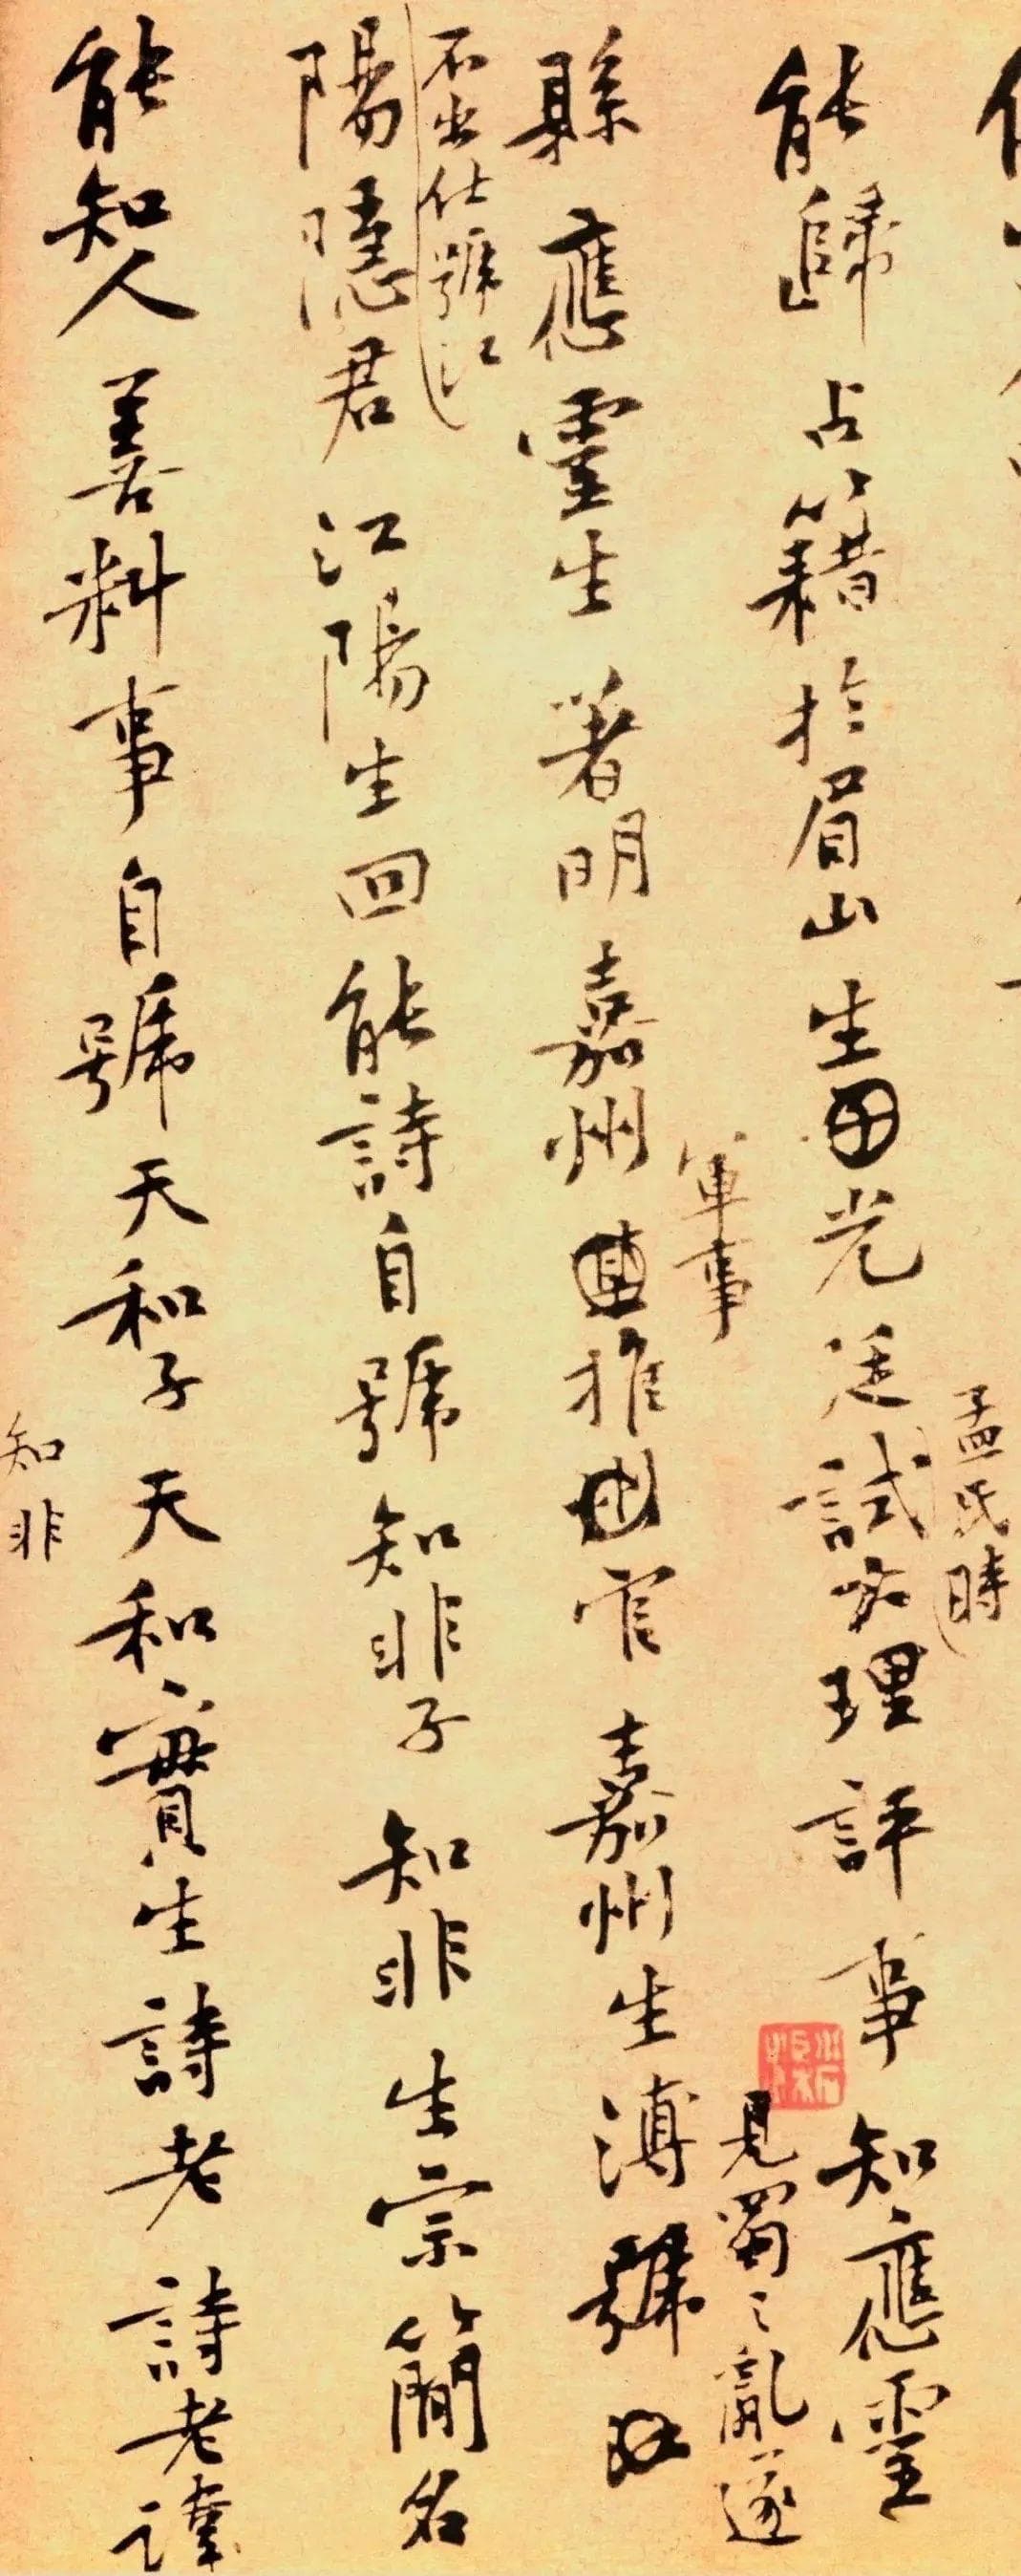 能歸占籍於眉山生光庭試大理評事知應靈
孟氏時
縣應靈生著明嘉州推官嘉州生溥號
軍事
見蜀之亂遂
不出仕號江
陽隱君江陽生回能詩自號知非子知非生宗簡名
能知人善料事自號天和子天和實生詩老詩老諱
知非